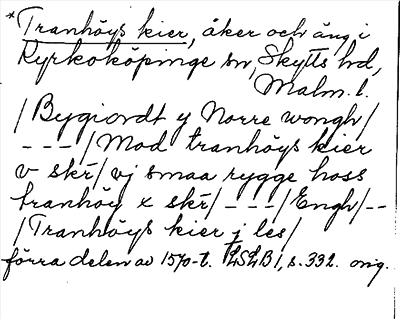 *Tranhöys kier, åker och äng i
Kyrkoköpinge sn, Skytts hd,
Malm. l.
/Bygiordt y Norre wongh/
---/Mod tranhöys kier
v skr̄/ vj smaa rygge hoss
tranhöy x skr̄/---/Engh/--
/Tranhöys kier j les/
förra delen av 1570-t. LSLB 1, s. 332. orig.